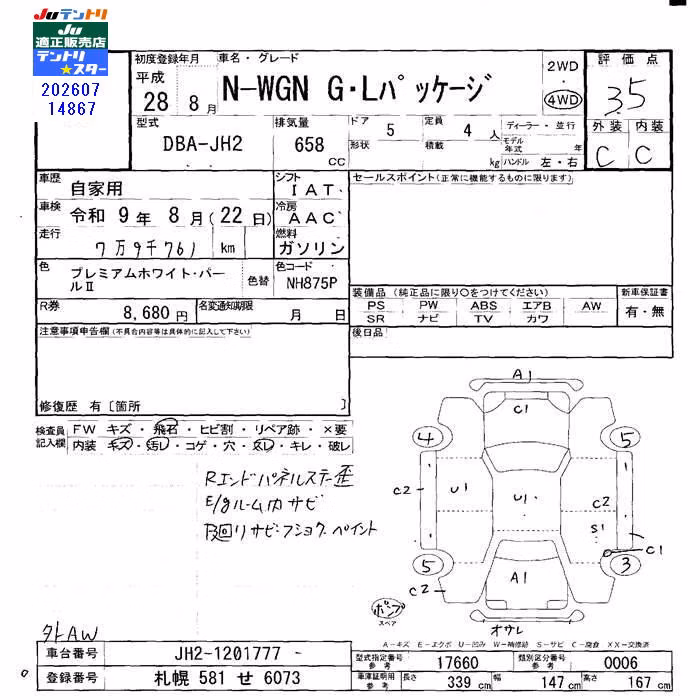 Juテントリ
JU
適正販売店
テントリ
★スター
202607
14867
初度登録年月
平成
28 8月
車名・グレード
N-WGN G・Lパッケージ
2WD
・
4WD
評価点
3.5
外装 内装
C C
型式
DBA-JH2
排気量
658
CC
ドア 5
形状
定員 4 人
積載 kg
ディーラー・並行
モデル年式 年
ハンドル 左・右
車歴 自家用
シフト IAT
車検 令和 9年 8月(22日)
冷房 AAC
走行 7万9千761 km
燃料 ガソリン
色 プレミアムホワイト・パールⅡ
色替
色コード NH875P
R券 8,680円
名変通知期限 月 日
セールスポイント(正常に機能するものに限ります)
装備品(純正品に限り○をつけてください)
PS PW ABS エアB AW
SR ナビ TV カワ
新車保証書
有・無
後日品
注意事項申告欄(不具合内容等は具体的に記入して下さい)
修復歴 有〔箇所 〕
検査員記入欄
FW キズ・飛石・ヒビ割・リペア跡・×要
内装 キズ・汚レ・コゲ・穴・スレ・キレ・破レ
Rエンドパネルステー歪
E/gルーム内サビ
下回リサビ・フショク・ペイント
外AW
A1
C1
4
5
C2
U1
U1
C2
S1
C1
5
3
C2
A1
ポンプ
スペア
オウレ
A-キズ E-エクボ U-凹み W-補修跡 S-サビ C-腐食 XX-交換済
車台番号 JH2-1201777
登録番号 札幌 581 せ 6073
型式指定番号 参考 17660
類別区分番号 参考 0006
車庫証明用 参考 長さ 339 cm 幅 147 cm 高さ 167 cm